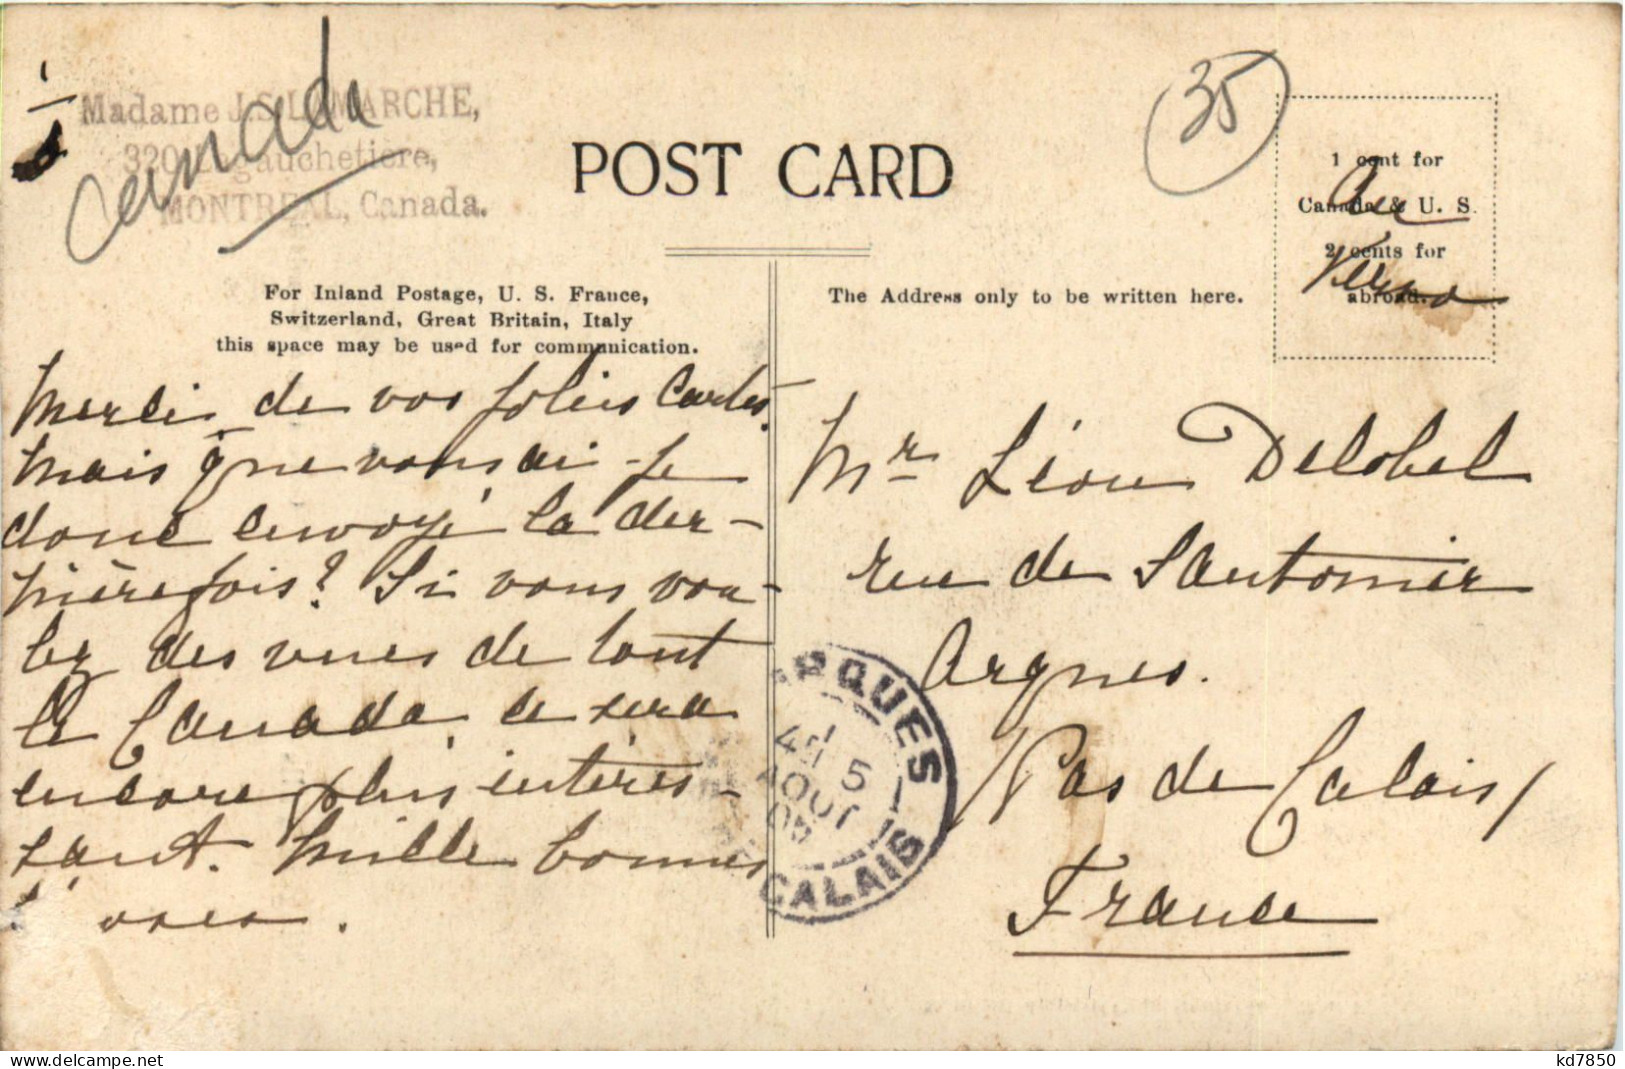 Canada
Madame J.S. LAMARCHE,
320 Lagauchetiere,
MONTREAL, Canada.
POST CARD
35
1 cent for
Canada & U. S.
2 cents for
abroad.
Au
Verso
For Inland Postage, U. S. France,
Switzerland, Great Britain, Italy
this space may be used for communication.
The Address only to be written here.
Merci de vos jolies Cartes.
Mais que vous ai-je
donc envoyé la der-
nière fois? Si vous vou-
lez des vues de tout
le Canada, ce sera
encore plus intéres-
sant. Mille bonnes
choses.
Mr Léon Delobel
rue de Santonier
Arques.
Pas de Calais/
France
ARQUES
5
AOUT
CALAIS
kd7850
delcampe.net